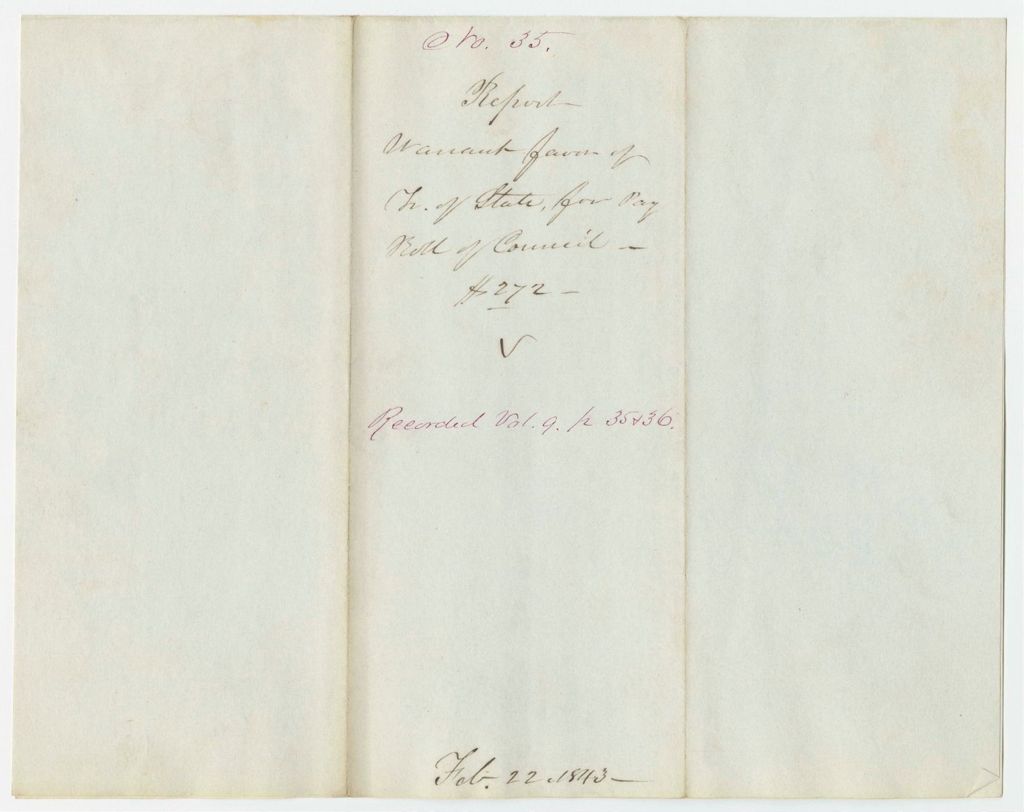 No. 35.
Report
Warrant favor of
Tr. of State, for Pay
Roll of Council —
$272 —
Recorded Vol. 9. p 35 & 36.
Feb. 22. 1843 —